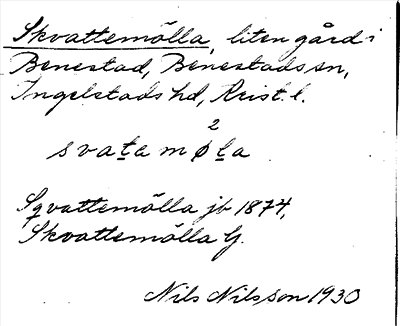 Skvattemölla, liten gård i
Benestad, Benestads sn,
Ingelstads hd, Krist. l.
2
svatamøla
Sqvattemölla jb 1874,
Skvattemölla G.
Nils Nilsson 1930